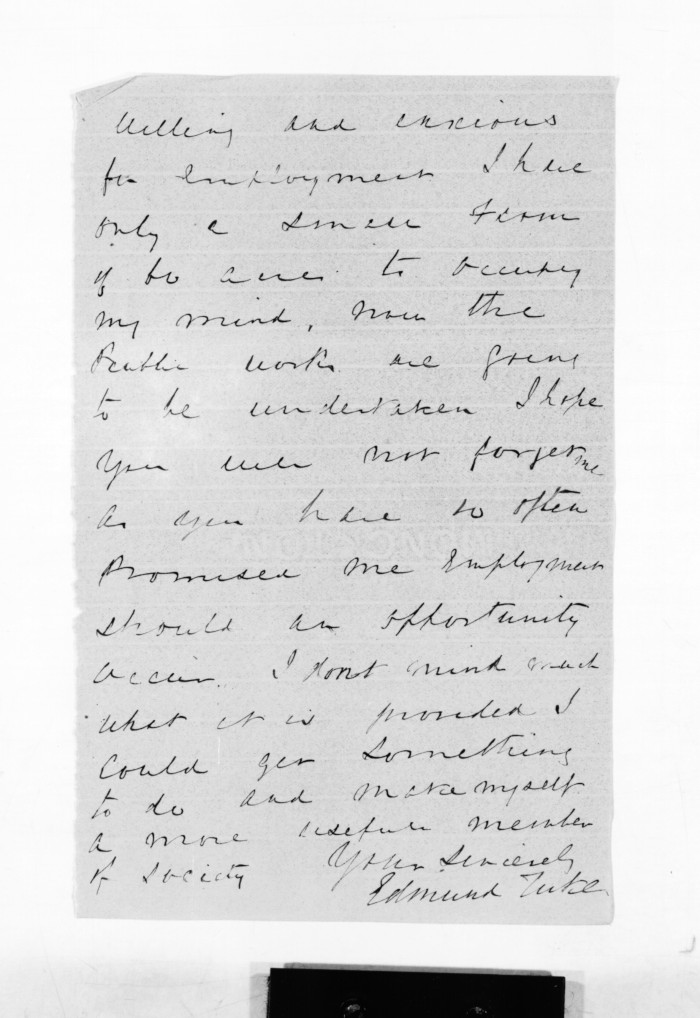 Willing and anxious
for employment I have
only a small Farm
of 60 acres to occupy
my mind, now the
Public works are going
to be undertaken I hope
you will not forget me
as you have so often
Promised me Employment
should an opportunity
occur. I dont mind much
what it is provided I
could get something
to do and make myself
a more useful member
of society Yours sincerely
Edmund Tuke